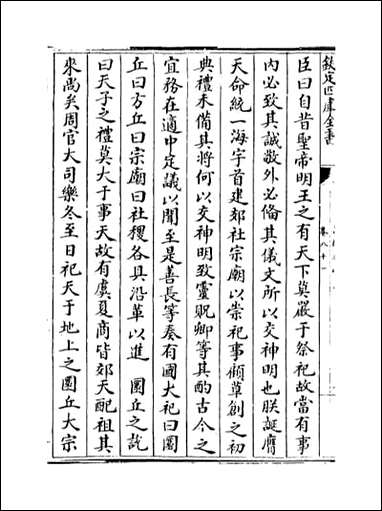 欽定四庫全書
卷八十一
臣曰自昔聖帝明王之有天下莫嚴于祭祀故當有事
内必致其誠敬外必備其儀文所以交神明也朕誕膺
天命統一海宇首建郊社宗廟以崇祀事顧草創之初
典禮未備其將何以交神明致靈貺卿等其酌古今之
宜務在適中定議以聞至是善長等奏有國大祀曰圜
丘曰方丘曰宗廟曰社稷各具沿革以進　圜丘之說
曰天子之禮莫大于事天故有虞夏商皆郊天配祖其
來尚矣周官大司樂冬至日祀天于地上之圜丘大宗